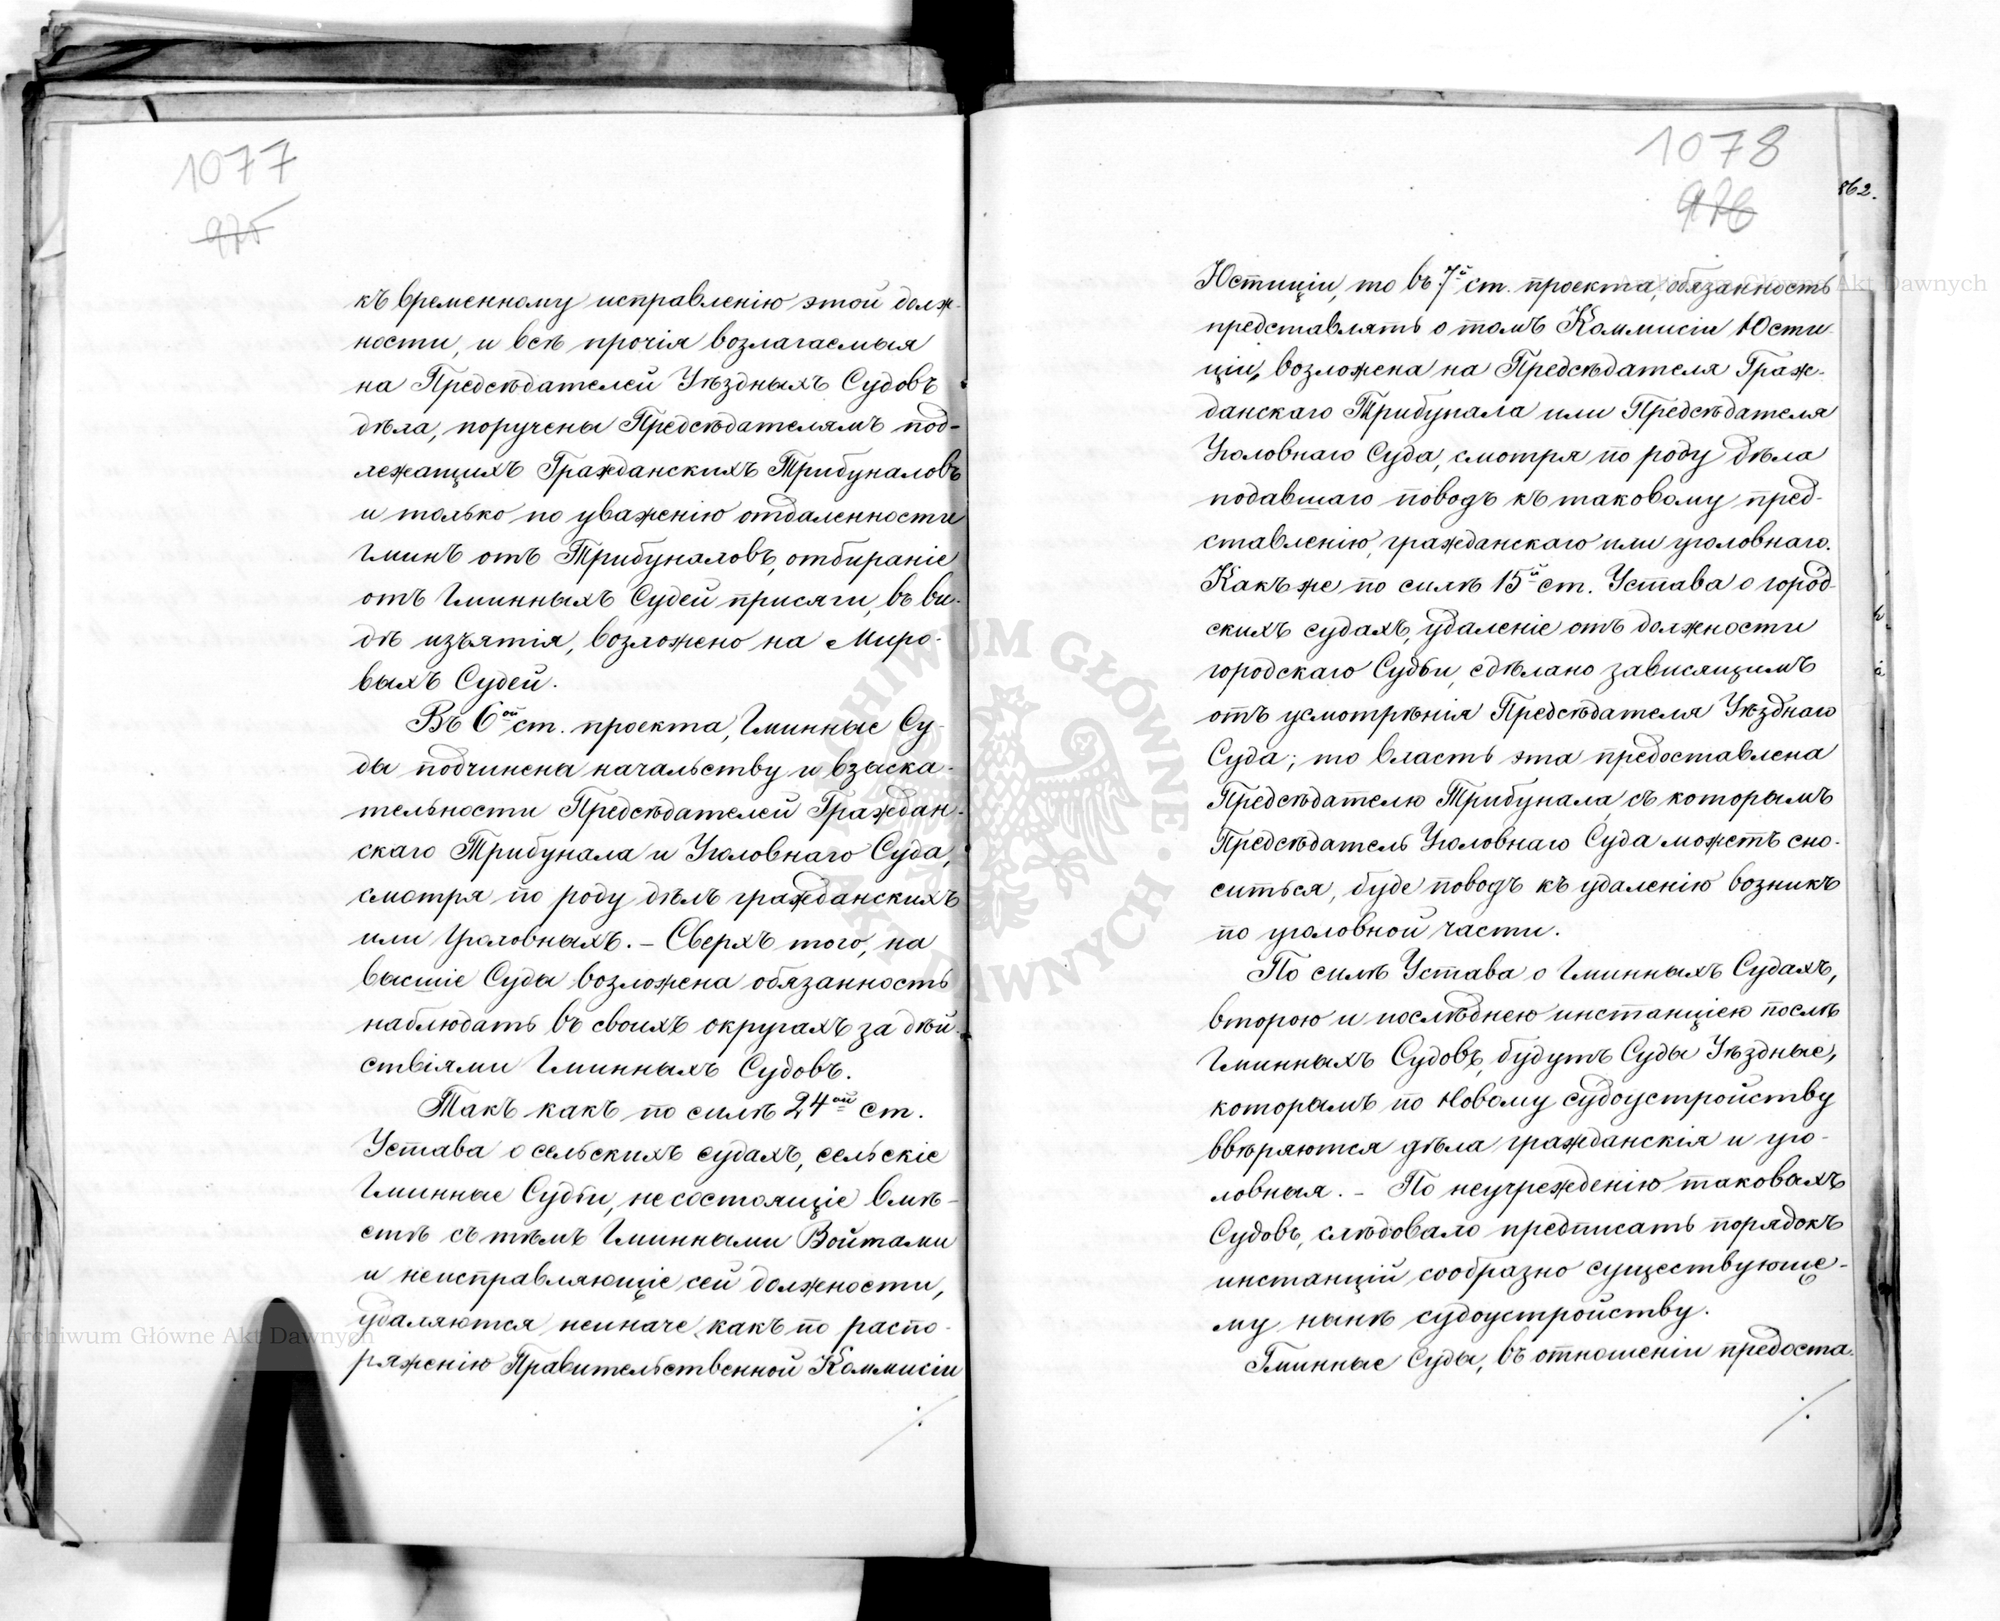 1077
975
къ временному исправленію этой долж-
ности, и всѣ прочія возлагаемыя
на Предсѣдателей Уѣздныхъ Судовъ
дѣла, поручены Предсѣдателямъ под-
лежащихъ Гражданскихъ Трибуналовъ
и только по уваженію отдаленности
Гминъ отъ Трибуналовъ, отбираніе
отъ Гминныхъ Судей присяги, въ ви-
дѣ изъятія, возложено на Миро-
выхъ Судей.
Въ 6ой ст. проекта, Гминные Су-
ды подчинены начальству и взыска-
тельности Предсѣдателей Граждан-
скаго Трибунала и Уголовнаго Суда,
смотря по роду дѣлъ гражданскихъ
или уголовныхъ. – Сверхъ того, на
высшіе Суды возложена обязанность
наблюдать въ своихъ округахъ за дѣй-
ствіями Гминныхъ Судовъ.
Такъ какъ по силѣ 24ой ст.
Устава о сельскихъ судахъ, сельскіе
Гминные Судьи, не состоящіе вмѣ-
стѣ съ тѣмъ Гминными Войтами
и неисправляющіе сей должности,
удаляются неиначе, какъ по распо-
ряженію Правительственной Коммисіи
Archiwum Główne Akt Dawnych
1078
976
862.
Юстиціи, то въ 7й ст. проекта, обязанность
представлять о томъ Коммисіи Юсти-
ціи, возложена на Предсѣдателя Граж-
данскаго Трибунала или Предсѣдателя
Уголовнаго Суда, смотря по роду дѣла
подавшаго поводъ къ таковому пред-
ставленію, гражданскаго или уголовнаго.
Какъ же по силѣ 15й ст. Устава о город-
скихъ судахъ, удаленіе отъ должности
городскаго Судьи, сдѣлано зависящимъ
отъ усмотрѣнія Предсѣдателя Уѣзднаго
Суда; то власть эта предоставлена
Предсѣдателю Трибунала, съ которымъ
Предсѣдатель Уголовнаго Суда можетъ сно-
ситься, буде поводъ къ удаленію возникъ
по уголовной части.
По силѣ Устава о Гминныхъ Судахъ,
второю и послѣднею инстанціею послѣ
Гминныхъ Судовъ, будутъ Суды Уѣздные,
которымъ по новому судоустройству
ввѣряются дѣла гражданскія и уго-
ловныя. – По неучрежденію таковыхъ
Судовъ, слѣдовало предписать порядокъ
инстанцій сообразно существующе-
му нынѣ судоустройству.
Гминные Суды, въ отношеніи предоста-
Archiwum Główne Akt Dawnych
ARCHIWUM GŁÓWNE AKT DAWNYCH